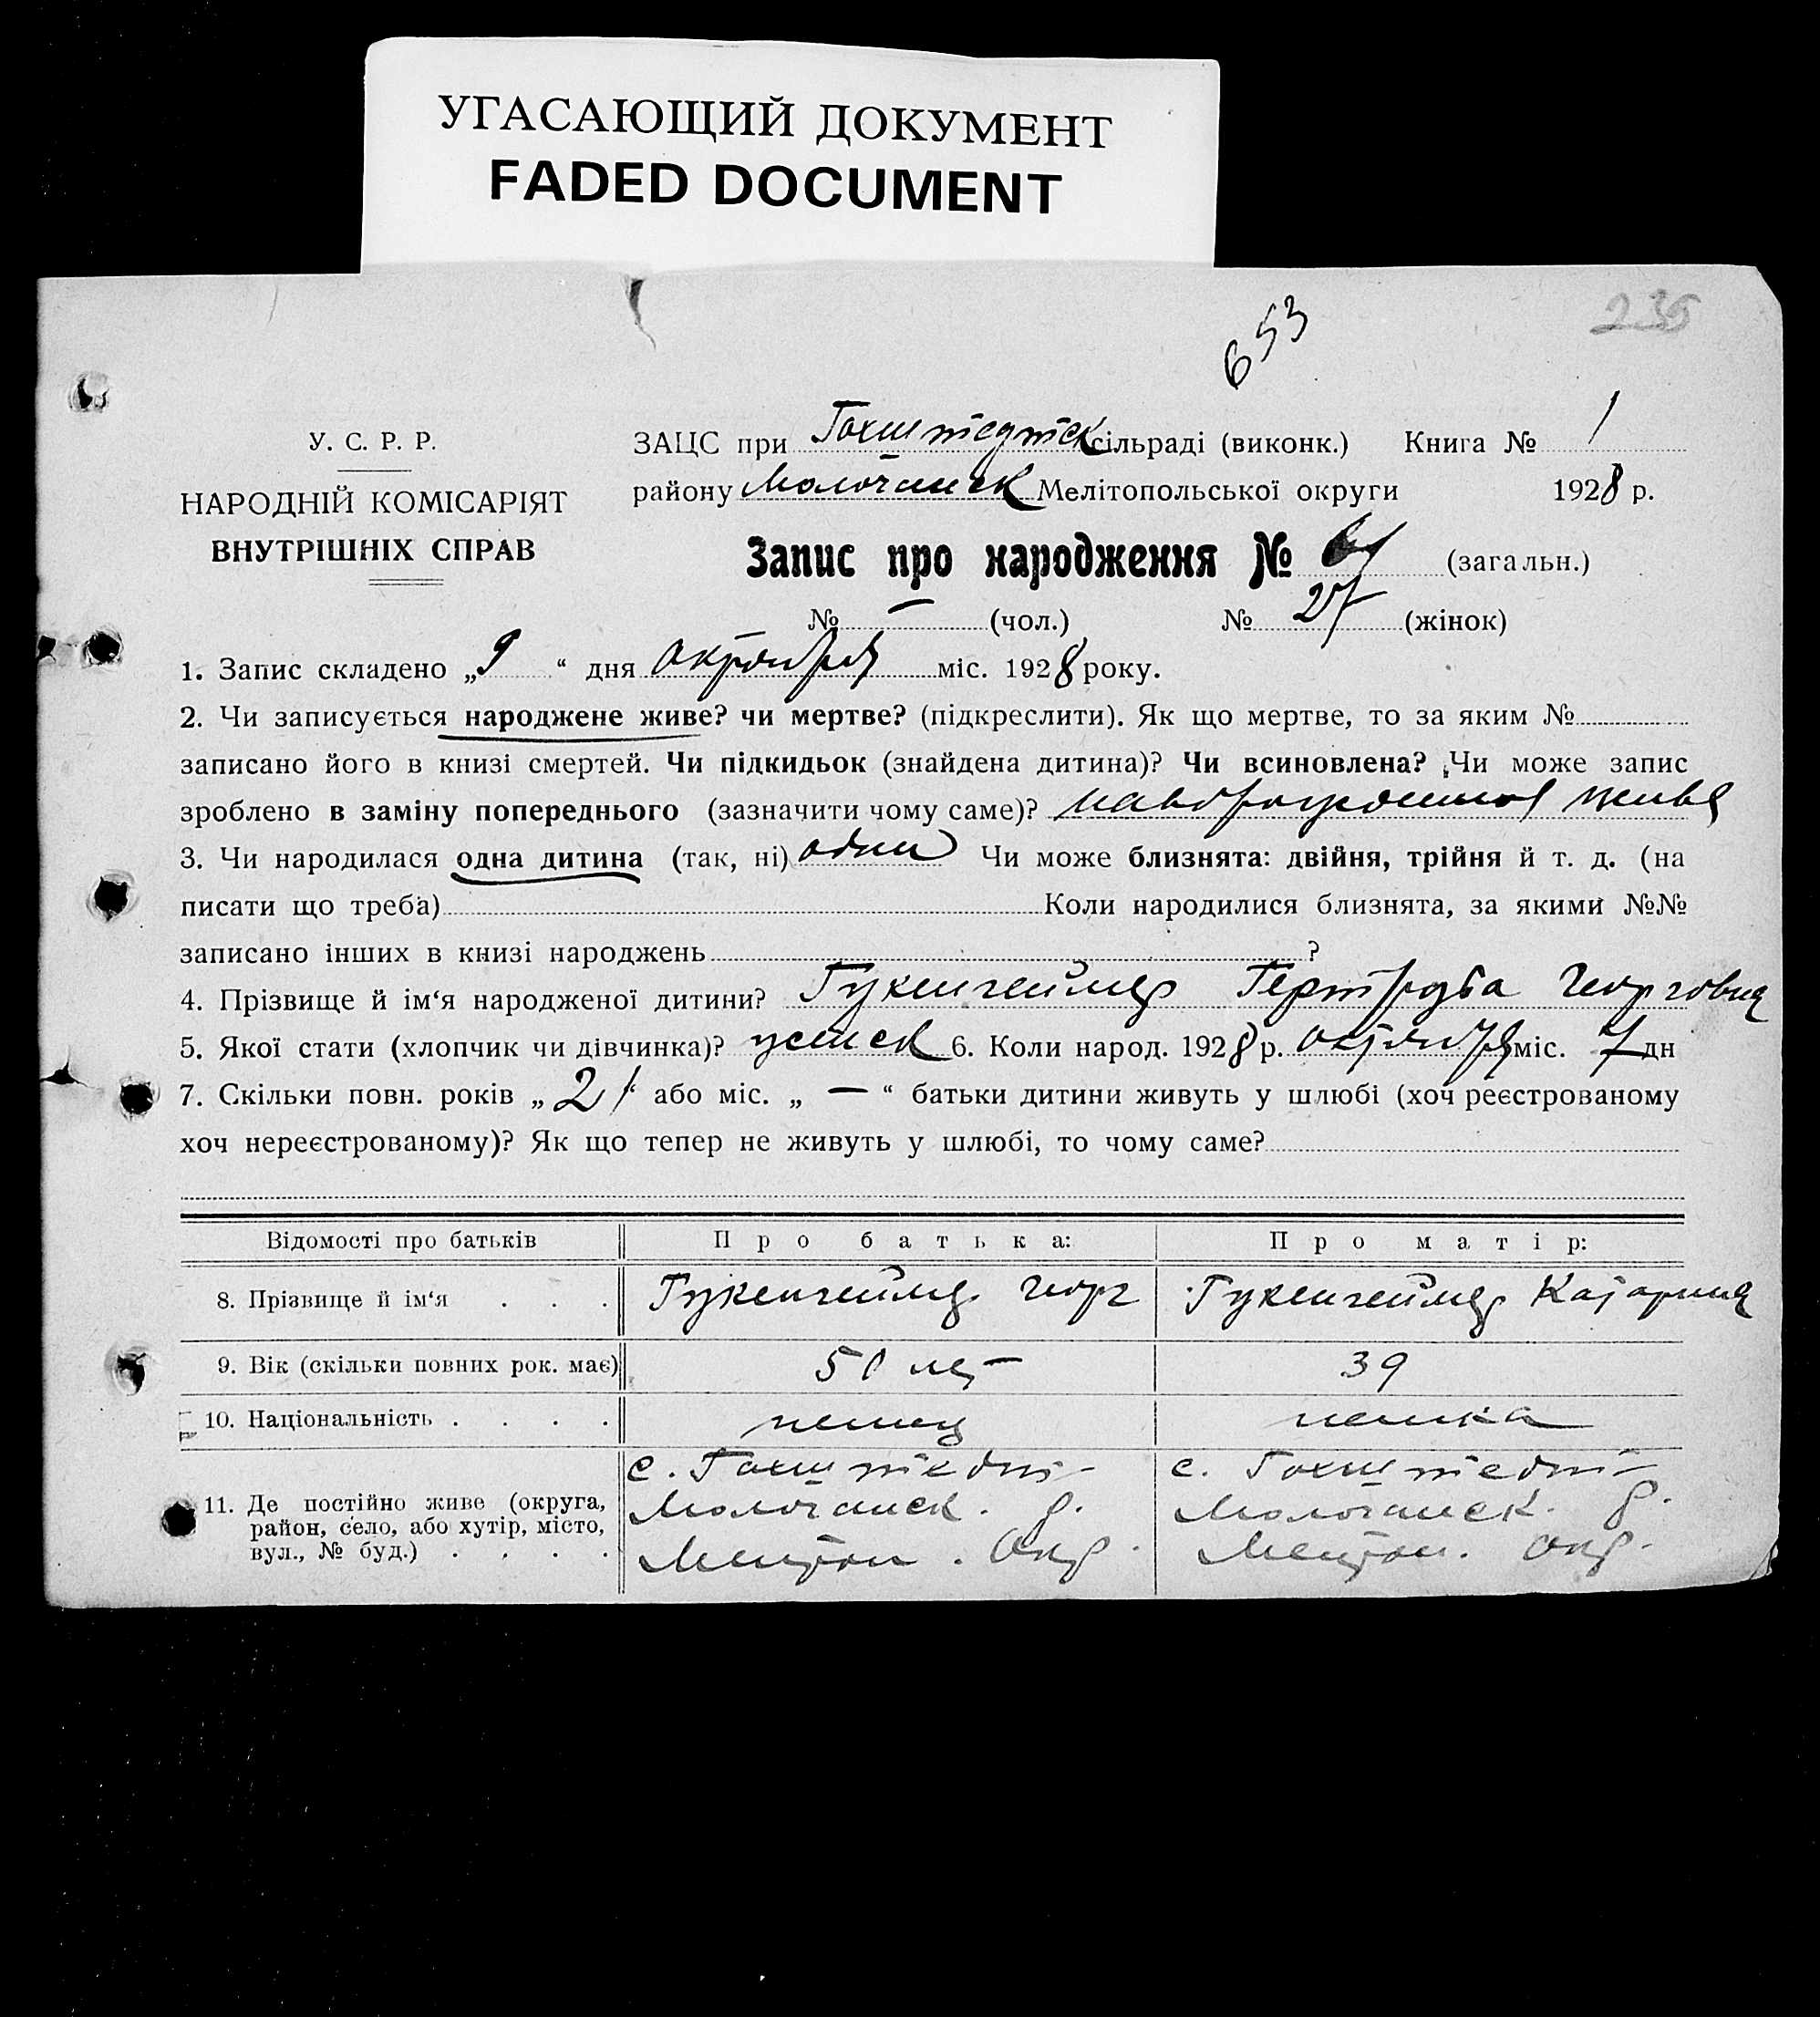 УГАСАЮЩИЙ ДОКУМЕНТ
FADED DOCUMENT
653
235
У. С. Р. Р.
НАРОДНІЙ КОМІСАРІЯТ
ВНУТРІШНІХ СПРАВ
ЗАЦС при Гохштедтск сільраді (виконк.) Книга № 1
району Молочанск Мелітопольської округи 1928 р.
Запис про народження № (загальн.)
№ — (чол.) № 27 (жінок)
1. Запис складено „9“ дня октября міс. 1928 року.
2. Чи записується народжене живе? чи мертве? (підкреслити). Як що мертве, то за яким №
записано його в книзі смертей. Чи підкидьок (знайдена дитина)? Чи всиновлена? Чи може запис
зроблено в заміну попереднього (зазначити чому саме)? живая
3. Чи народилася одна дитина (так, ні) один Чи може близнята: двійня, трійня й т. д. (на
писати що треба) Коли народилися близнята, за якими №№
записано інших в книзі народжень ?
4. Прізвище й ім‘я народженої дитини? Гукенгеймер Гертруда Георговна
5. Якої стати (хлопчик чи дівчинка)? женск 6. Коли народ. 1928 р. октября міс. 7 дн
7. Скільки повн. років „21“ або міс. „ — “ батьки дитини живуть у шлюбі (хоч реєстрованому
хоч нереєстрованому)? Як що тепер не живуть у шлюбі, то чому саме?
Відомості про батьків Про батька: Про матір:
8. Прізвище й ім‘я . . . Гукенгеймер Георг Гукенгеймер Катарина
9. Вік (скільки повних рок. має) 50 лет 39
10. Національність . . . . немец немка
11. Де постійно живе (округа, район, село, або хутір, місто, вул., № буд.) . . . .
с. Гохштедт
Молочанск. р.
Мелитоп. Окр.
с. Гохштедт
Молочанск. р.
Мелитоп. окр.